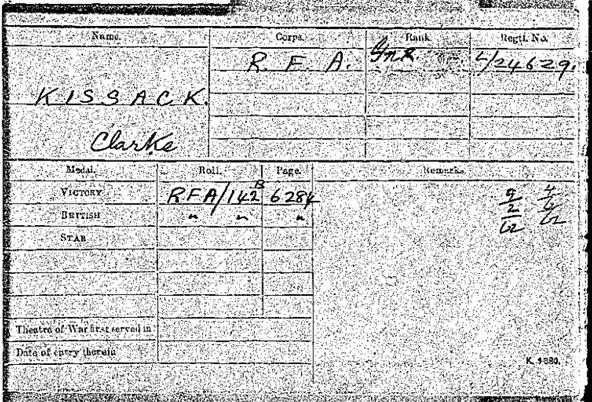 Name. Corps. Rank Regtl. No.
R F A. Gnr L/24629.
KISSACK.
Clarke
Medal. Roll. Page. Remarks.
VICTORY RFA/142B 6284
BRITISH " " "
STAR
Theatre of War first served in
Date of entry therein
K. 1380.